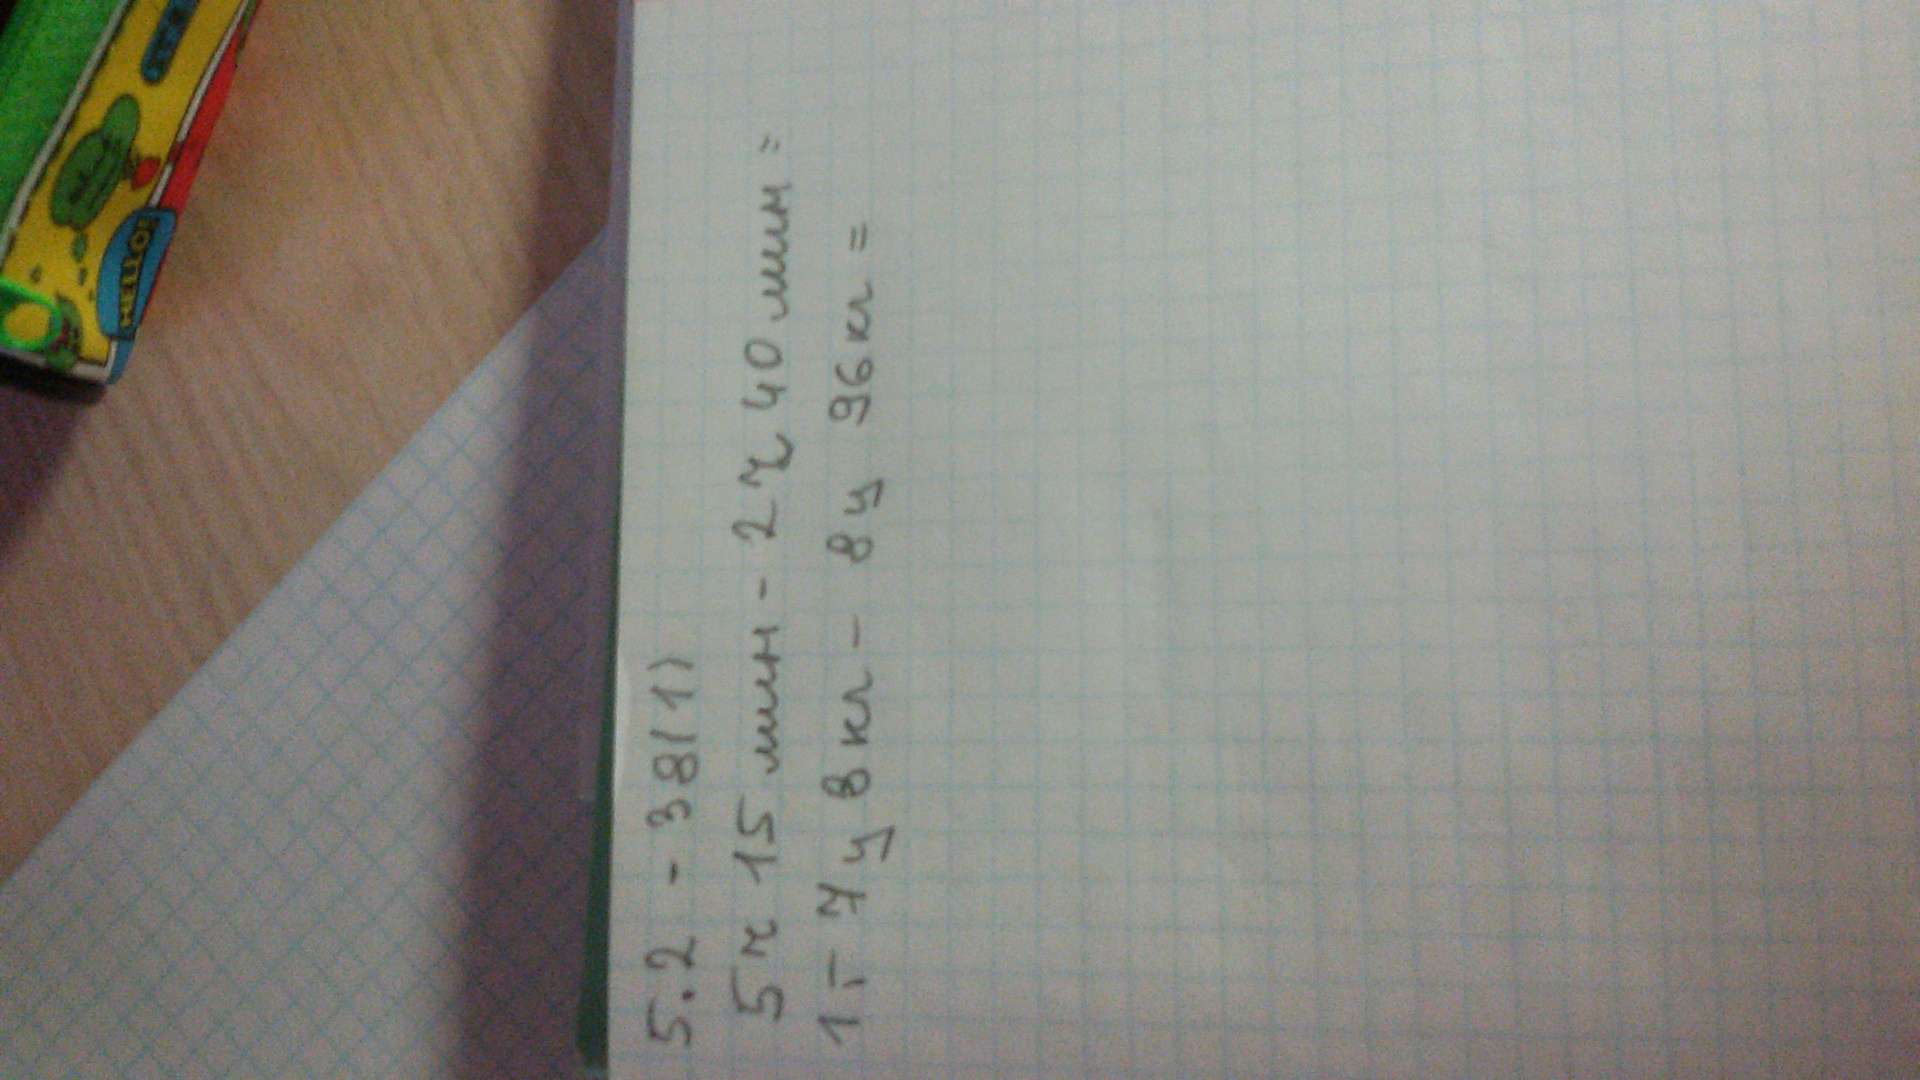 5.2 - 38(1)
5ч 15 мин - 2ч 40 мин =
1т 7ц 8кг - 8ц 96кг =
HELLO!